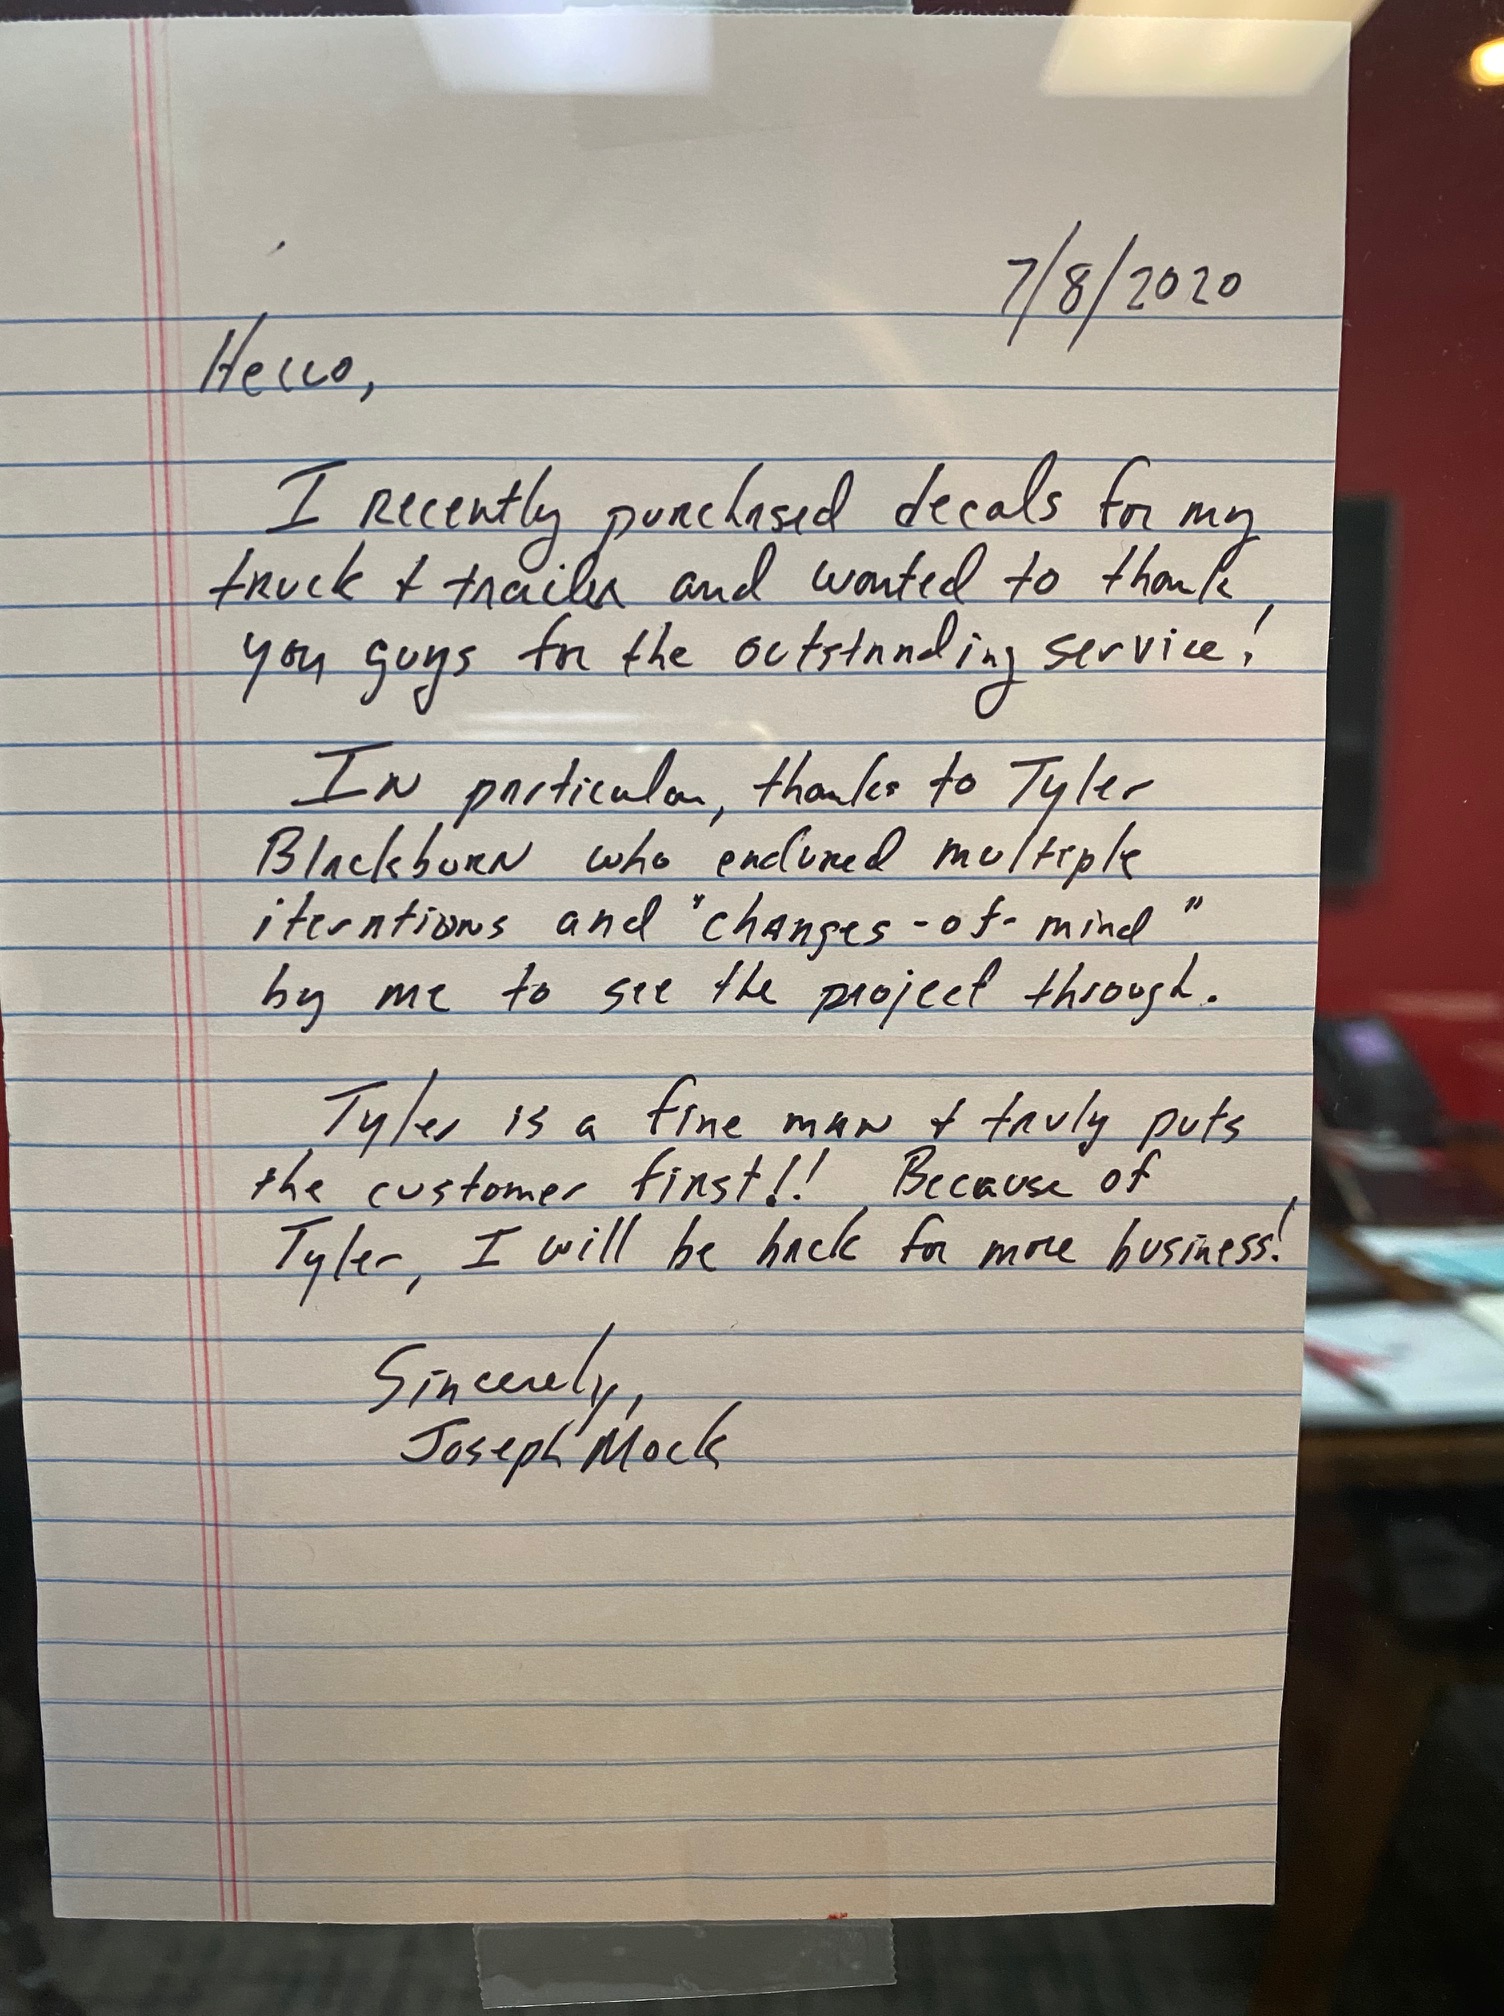 7/8/2020
Hello,
I recently purchased decals for my
truck & trailer and wanted to thank
you guys for the outstanding service!
In particular, thanks to Tyler
Blackburn who endured multiple
iterations and "changes-of-mind"
by me to see the project through.
Tyler is a fine man & truly puts
the customer first!! Because of
Tyler, I will be back for more business!
Sincerely,
Joseph Mock